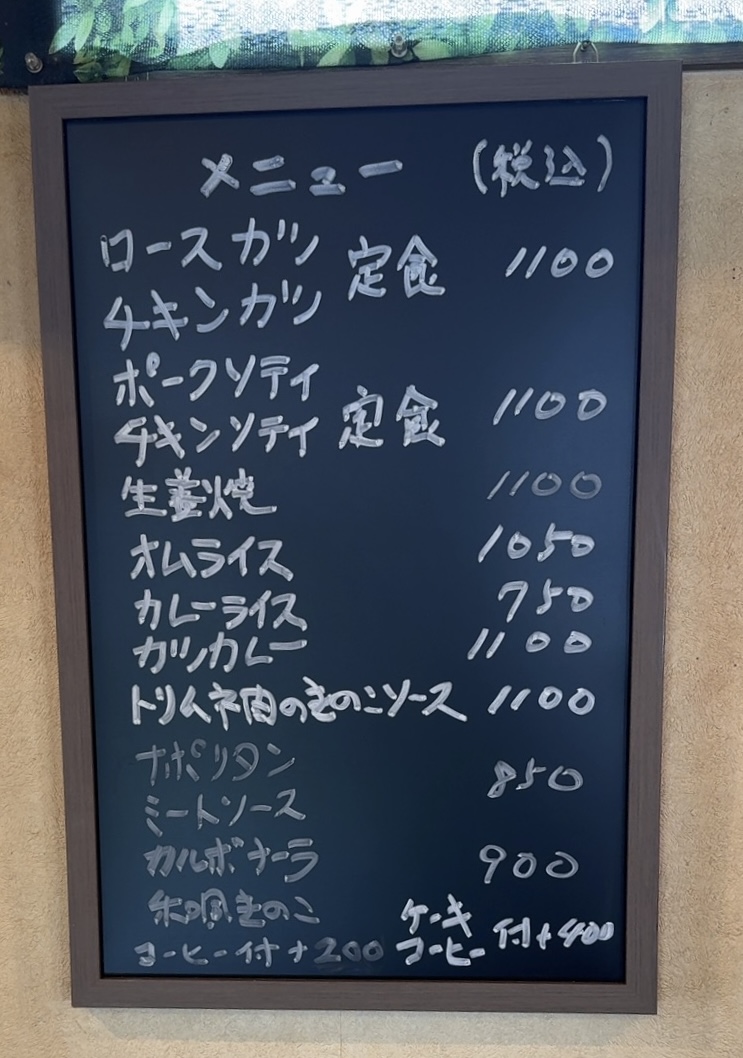 メニュー (税込)
ロースカツ 定食 1100
チキンカツ
ポークソティ
チキンソティ 定食 1100
生姜焼 1100
オムライス 1050
カレーライス 750
カツカレー 1100
トリムネ肉のきのこソース 1100
ナポリタン 850
ミートソース
カルボナーラ 900
和風きのこ
コーヒー付+200
ケーキ
コーヒー 付+400